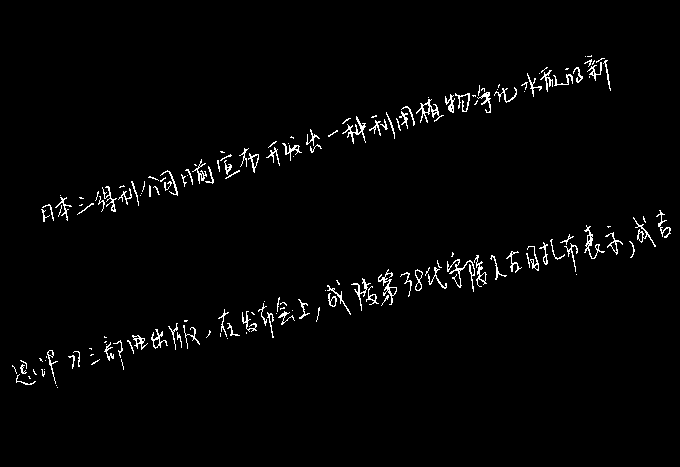 日本三得利公司日前宣布开发出一种利用植物净化水质的新
思汗刀三部曲出版，在发布会上，成陵第38代守陵人古日扎布表示，成吉